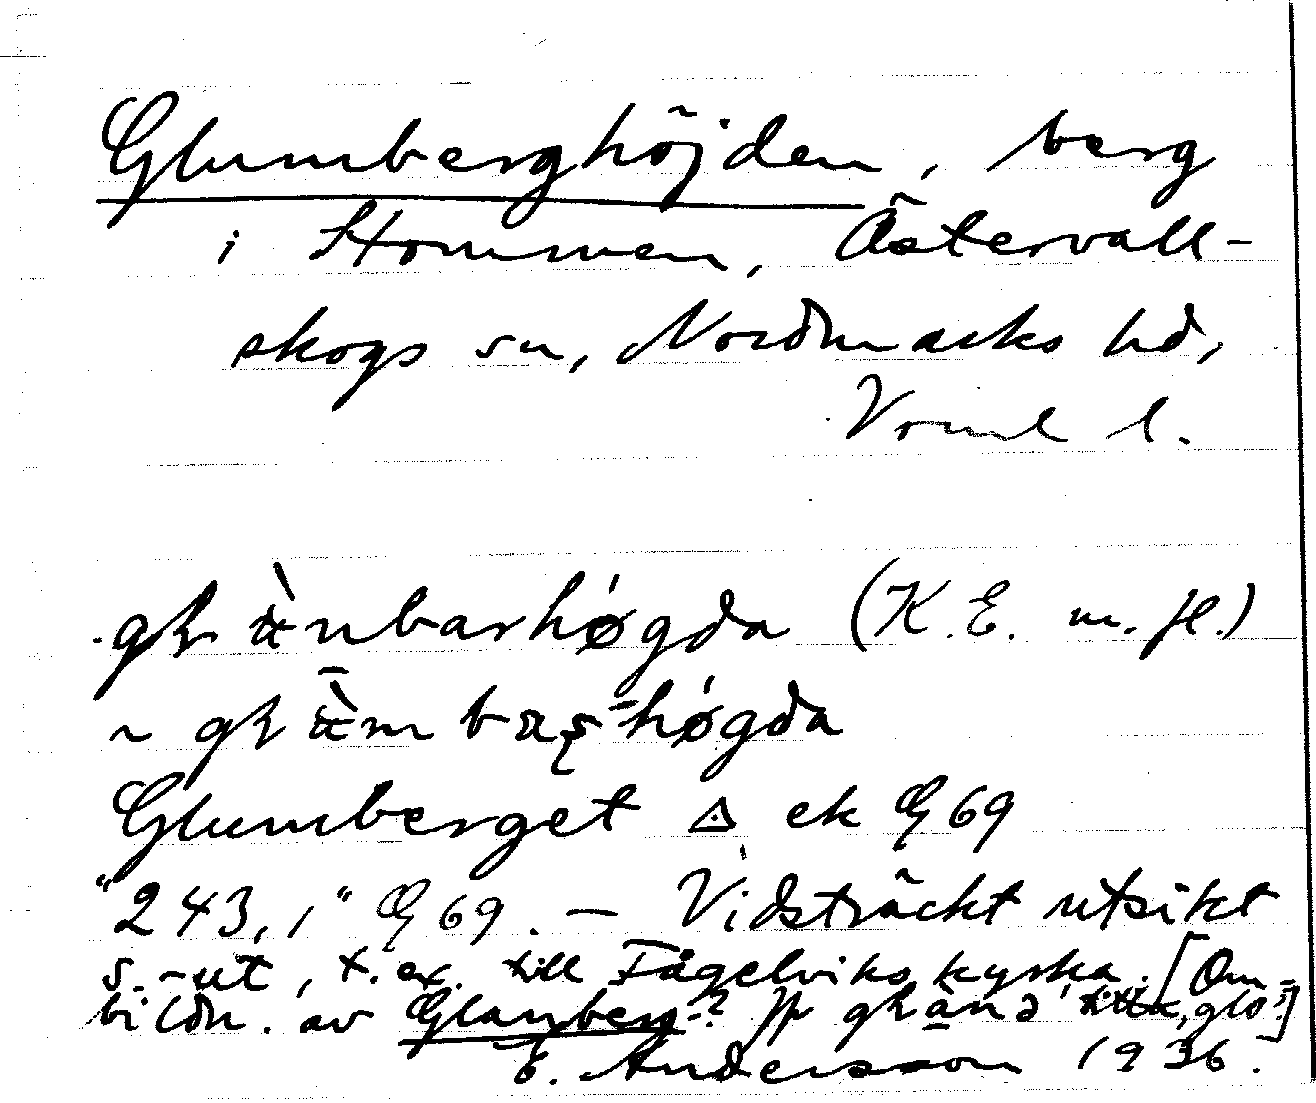 Glumberghöjden, berg
i Stommen, Östervall-
skogs sn, Nordmarks hd,
Värml l.
(K.E. m.fl.)
~
Glumberget ◬ ek G 69
"243,1" G 69. — Vidsträckt utsikt
s.-ut, t.ex. till Fågelviks kyrka. [Om-
bildn. av Glanberg-? Jfr
E. Andersson 1936.